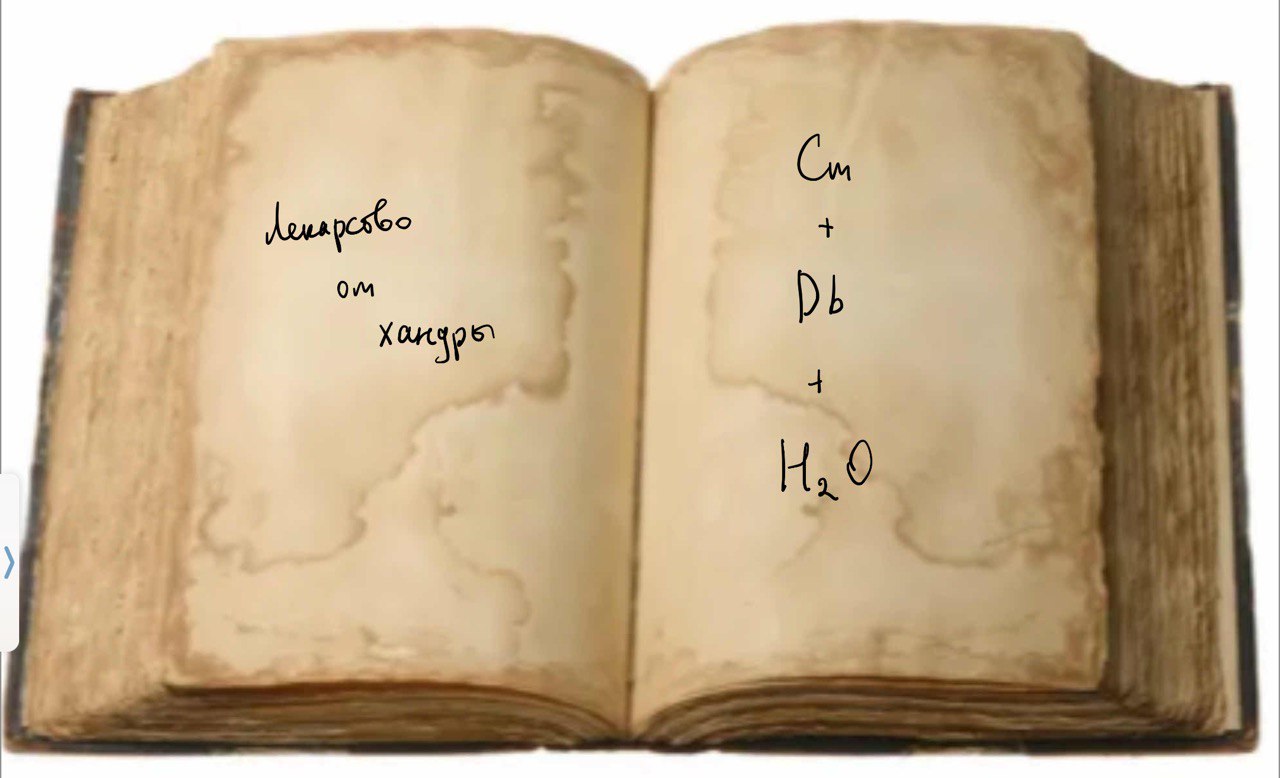 Лекарство
от
хандры
Cm
+
Db
+
H₂O